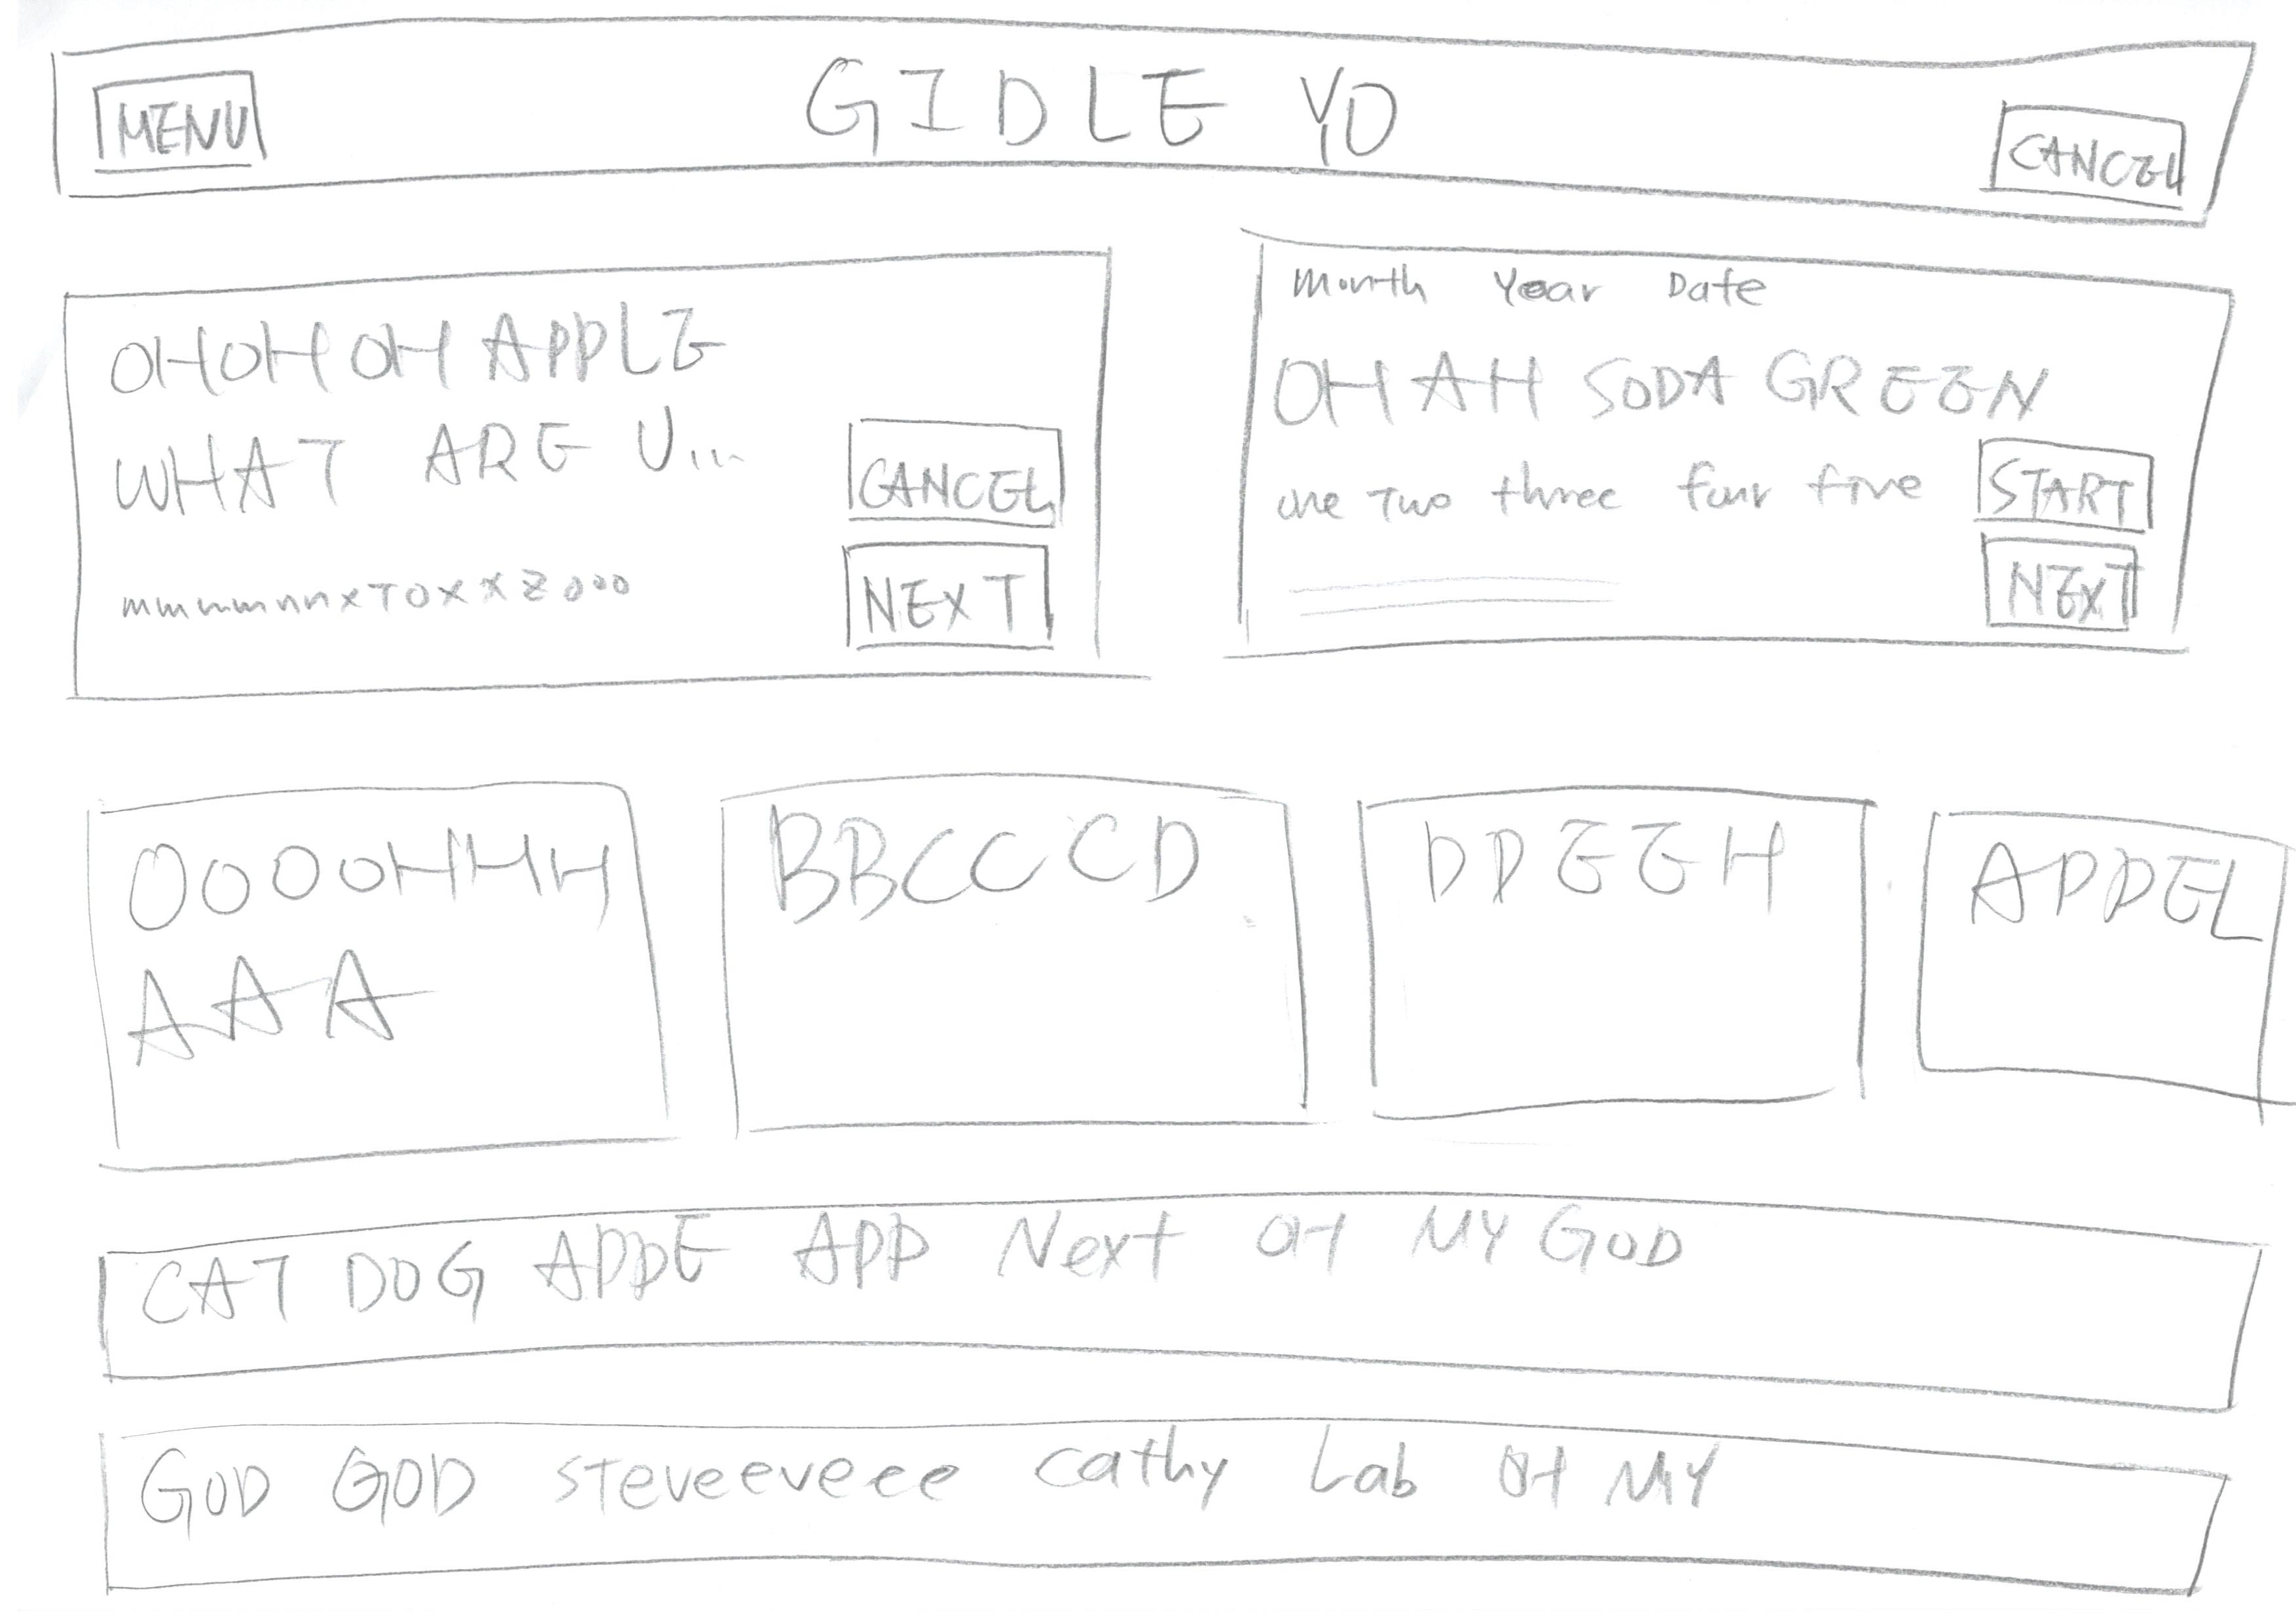 MENU GIDLE YO CANCEL
OHOHOH APPLE
WHAT ARE U...
CANCEL
mmmmnnxTOXXZooo
NEXT
Month Year Date
OH AH SODA GREEN
one Two three four five
START
NEXT
OOOOHHH
AAA
BBCCCD
DDEEH
APPEL
CAT DOG APPE APP Next OH MY GOD
GOD GOD steveeveee cathy Lab OH MY